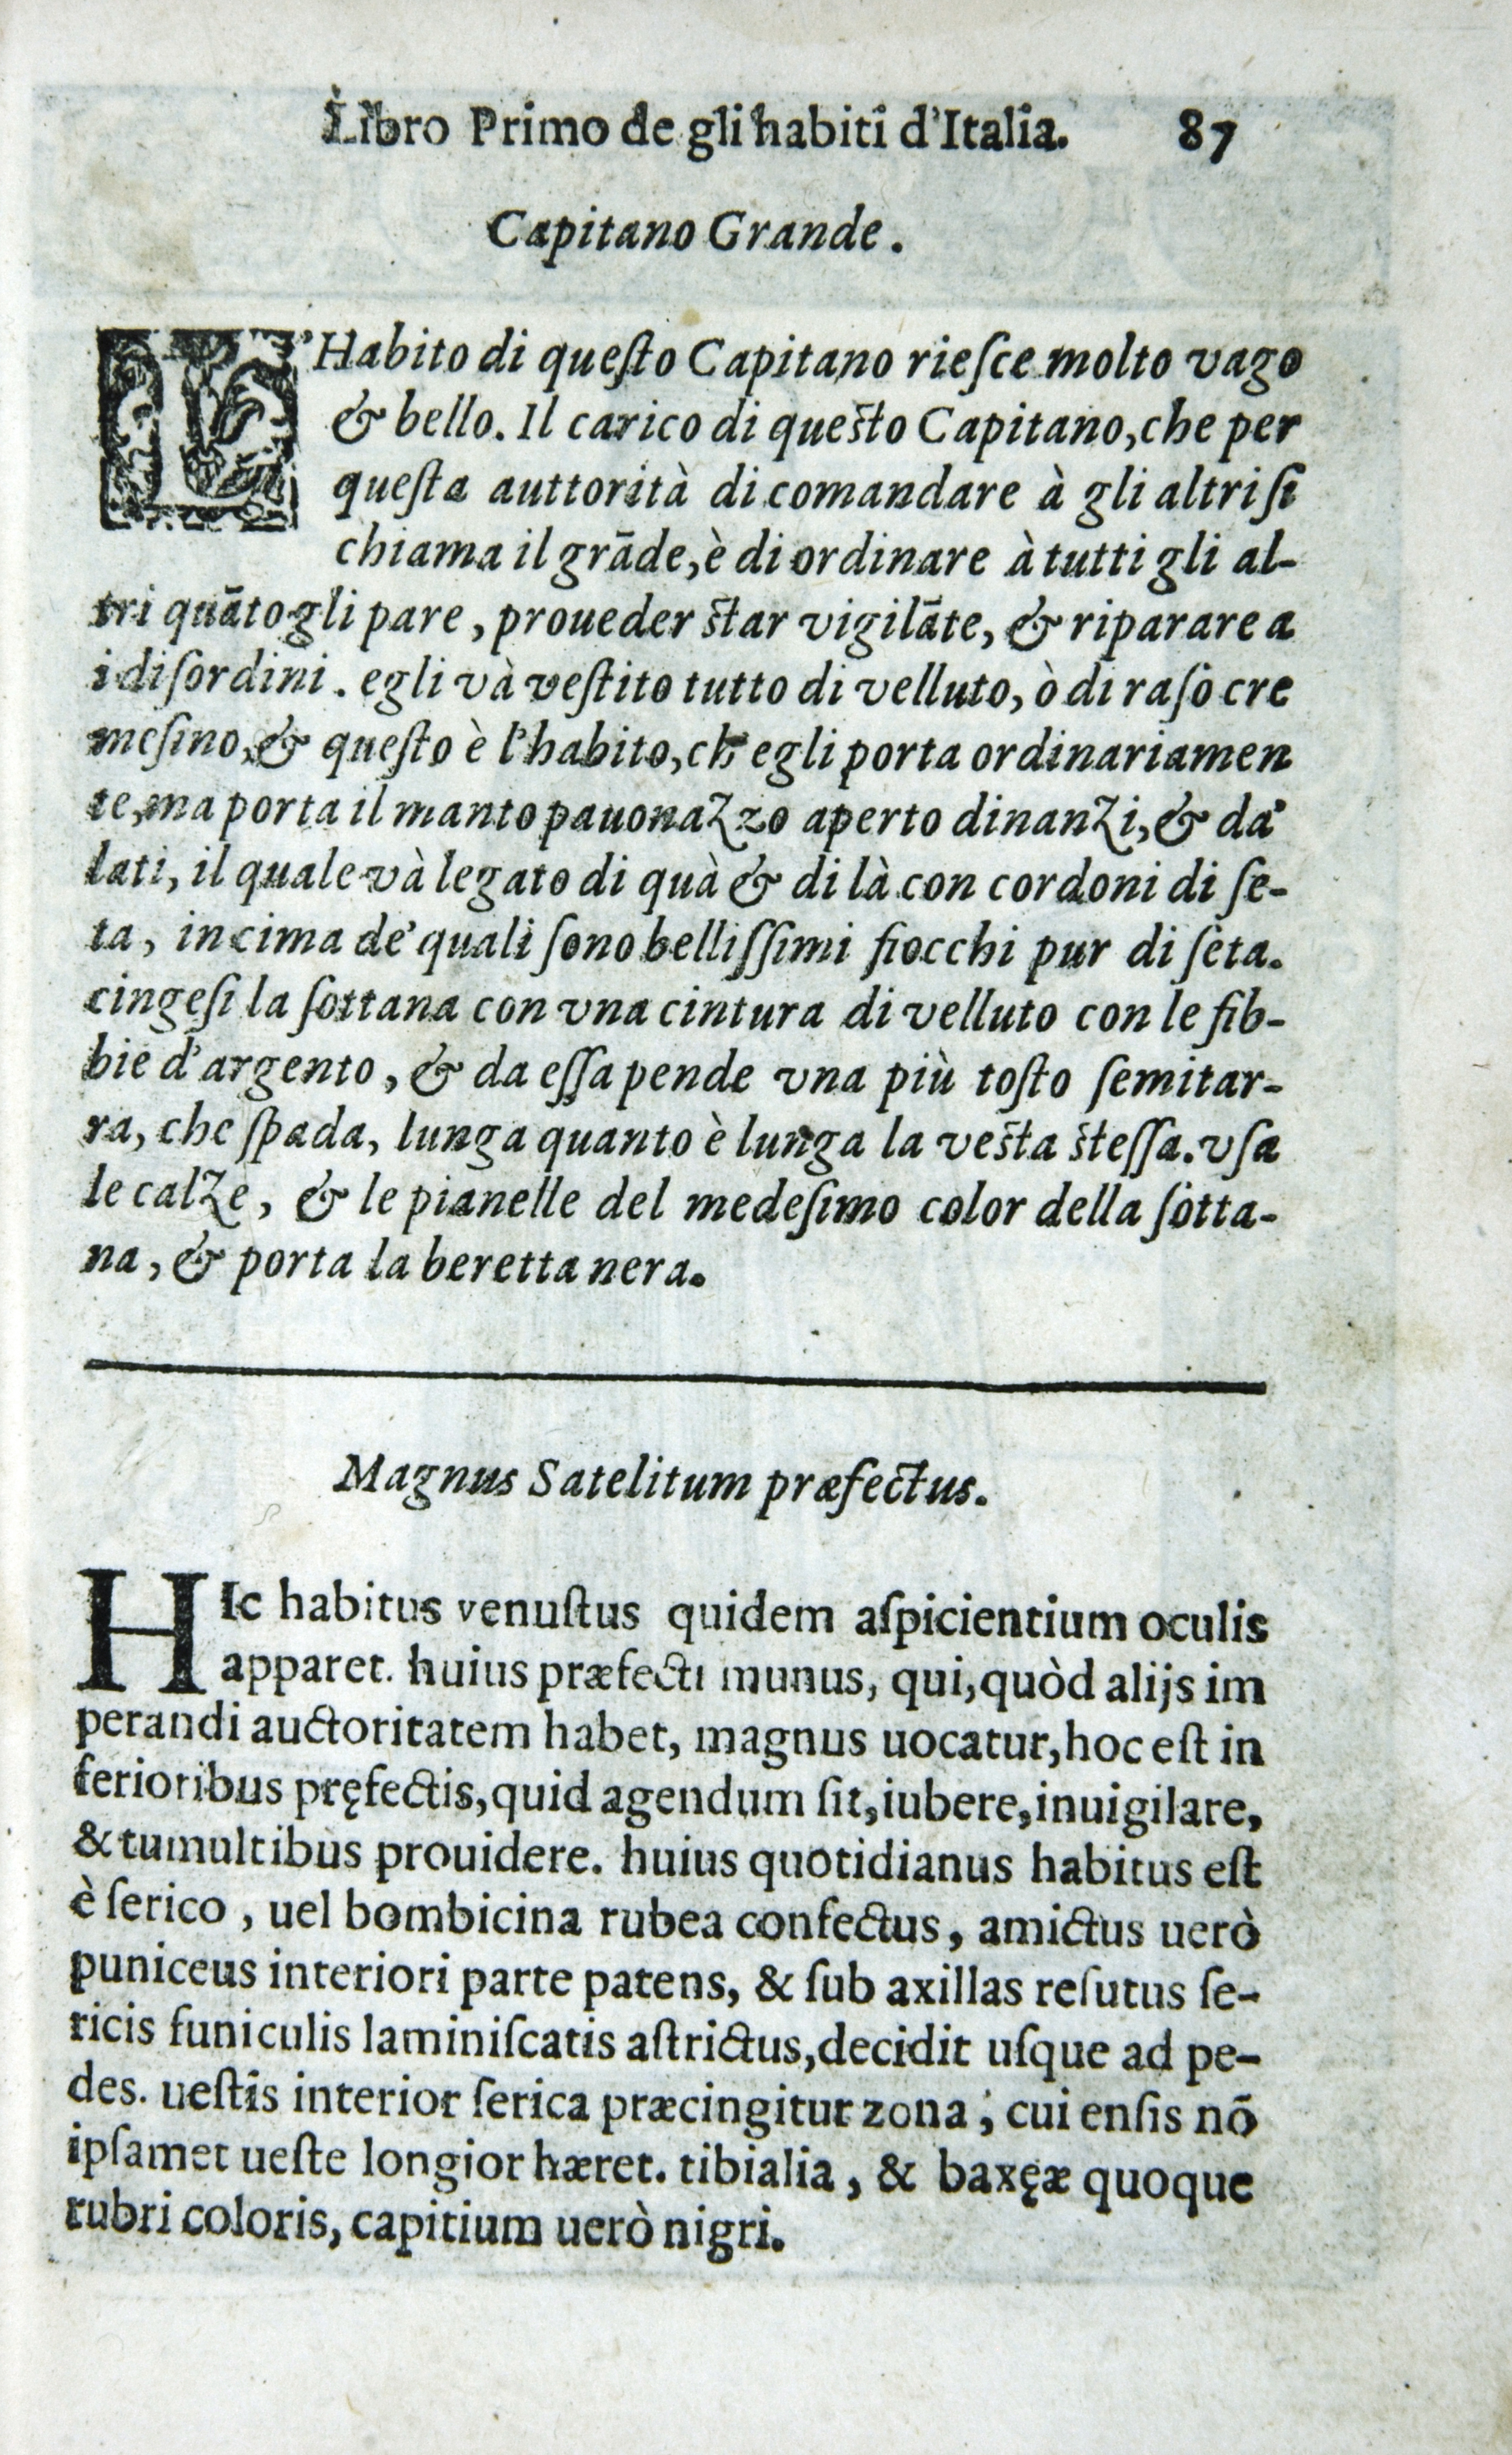 Libro Primo de gli habiti d'Italia. 87
Capitano Grande.
L'Habito di queſto Capitano rieſce molto vago
& bello. Il carico di queſto Capitano, che per
queſta auttorità di comandare à gli altri ſi
chiama il grāde, è di ordinare à tutti gli al-
tri quāto gli pare, proueder ſtar vigilāte, & riparare a
i diſordini. egli và veſtito tutto di velluto, ò di raſo cre
meſino, & queſto è l'habito, ch' egli porta ordinariamen
te, ma porta il manto pauonazzo aperto dinanzi, & da'
lati, il quale và legato di quà & di là con cordoni di ſe-
ta, in cima de' quali ſono belliſſimi fiocchi pur di ſeta.
cingeſi la ſottana con vna cintura di velluto con le fib-
bie d'argento, & da eſſa pende vna più toſto ſemitar-
ra, che ſpada, lunga quanto è lunga la veſta ſteſſa. vſa
le calze, & le pianelle del medeſimo color della ſotta-
na, & porta la beretta nera.
Magnus Satelitum præfectus.
HIc habitus venuſtus quidem aſpicientium oculis
apparet. huius præfecti munus, qui, quòd alijs im
perandi auctoritatem habet, magnus uocatur, hoc eſt in
ferioribus pręfectis, quid agendum ſit, iubere, inuigilare,
& tumultibus prouidere. huius quotidianus habitus eſt
è ſerico, uel bombicina rubea confectus, amictus uerò
puniceus interiori parte patens, & ſub axillas reſutus ſe-
ricis funiculis laminiſcatis aſtrictus, decidit uſque ad pe-
des. ueſtis interior ſerica præcingitur zona, cui enſis nō
ipſamet ueſte longior hæret. tibialia, & baxęæ quoque
rubri coloris, capitium uerò nigri.